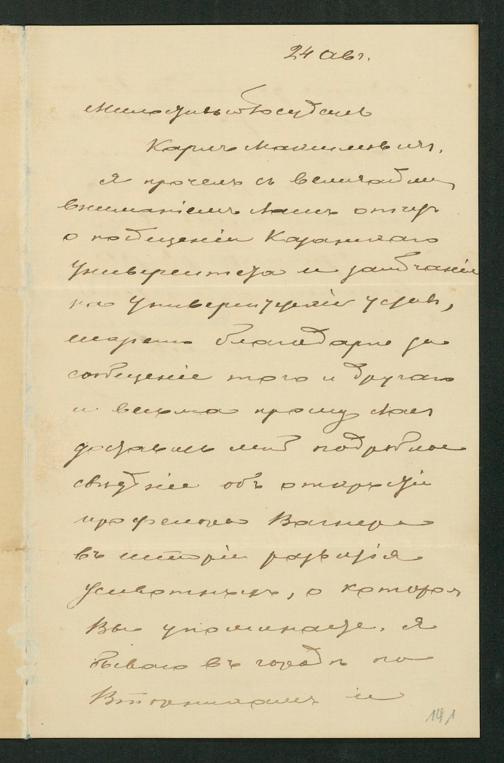 24 Авг.
Милостивый Государь
Карлъ Максимовичъ,
Я прочелъ съ величайшимъ
вниманіемъ Вашъ отчетъ
о посѣщеніи Казанскаго
Университета и замѣчанія
на Университетскій уставъ,
искренно благодарю за
сообщеніе того и другаго
и весьма прошу Васъ
доставить мнѣ подробное
свѣдѣніе объ открытіи
профессора Вагнера
въ исторіи развитія
животныхъ, о которомъ
Вы упоминаете. Я
бываю въ городѣ по
Вторникамъ и
141